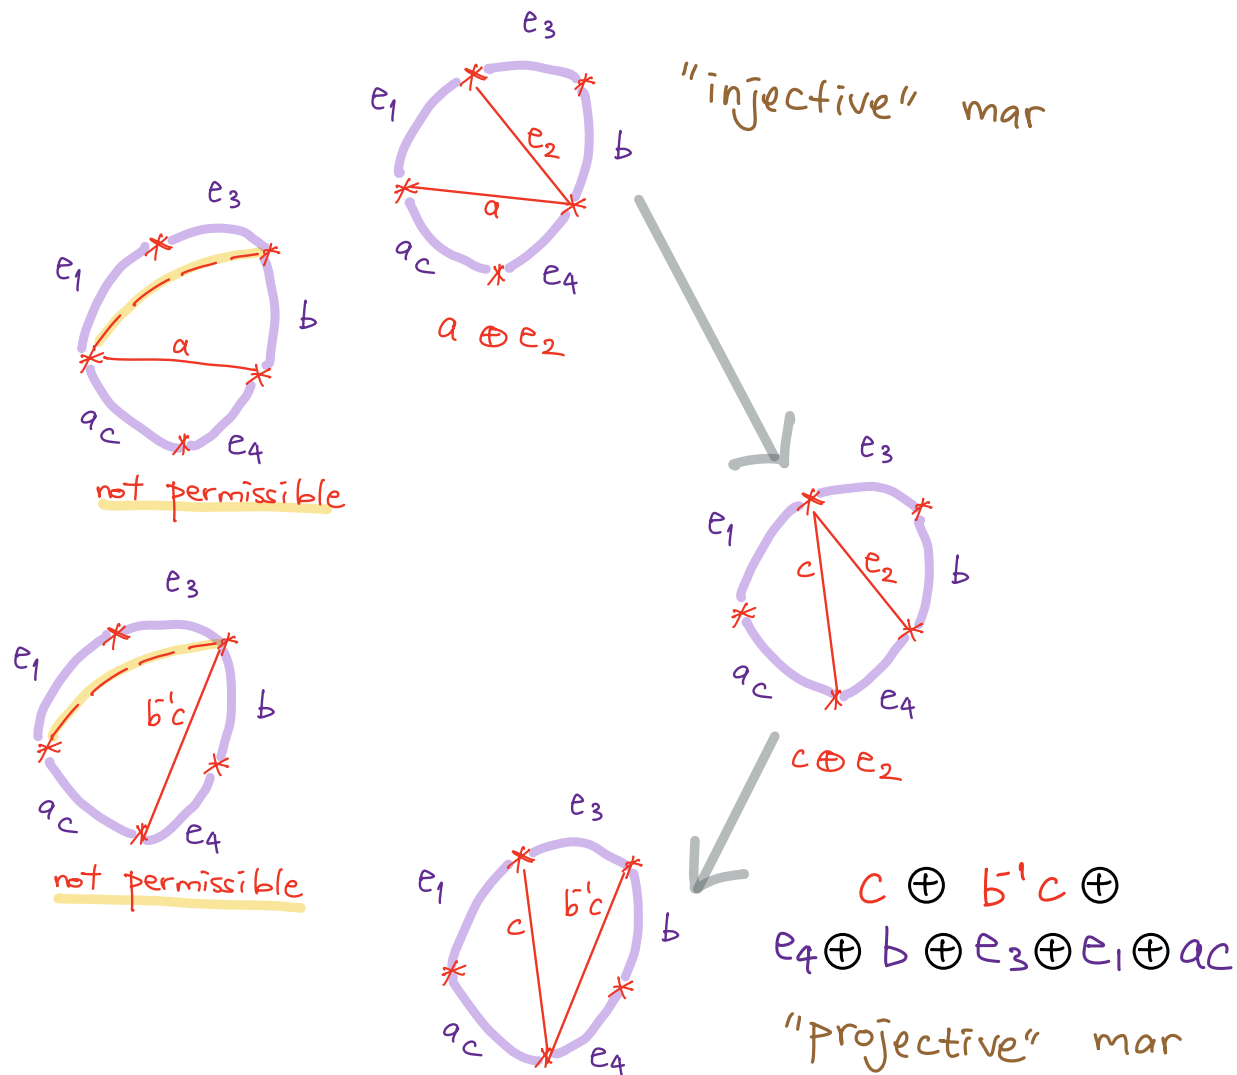 e₃
"injective" mar
e₁
e₂
b
a
ac
e₄
a ⊕ e₂
e₃
e₁
b
a
ac
e₄
not permissible
e₃
e₁
c
e₂
b
ac
e₄
c ⊕ e₂
e₃
e₁
b⁻¹c
b
ac
e₄
not permissible
e₃
e₁
c
b⁻¹c
b
ac
e₄
c ⊕ b⁻¹c ⊕
e₄ ⊕ b ⊕ e₃ ⊕ e₁ ⊕ ac
"projective" mar